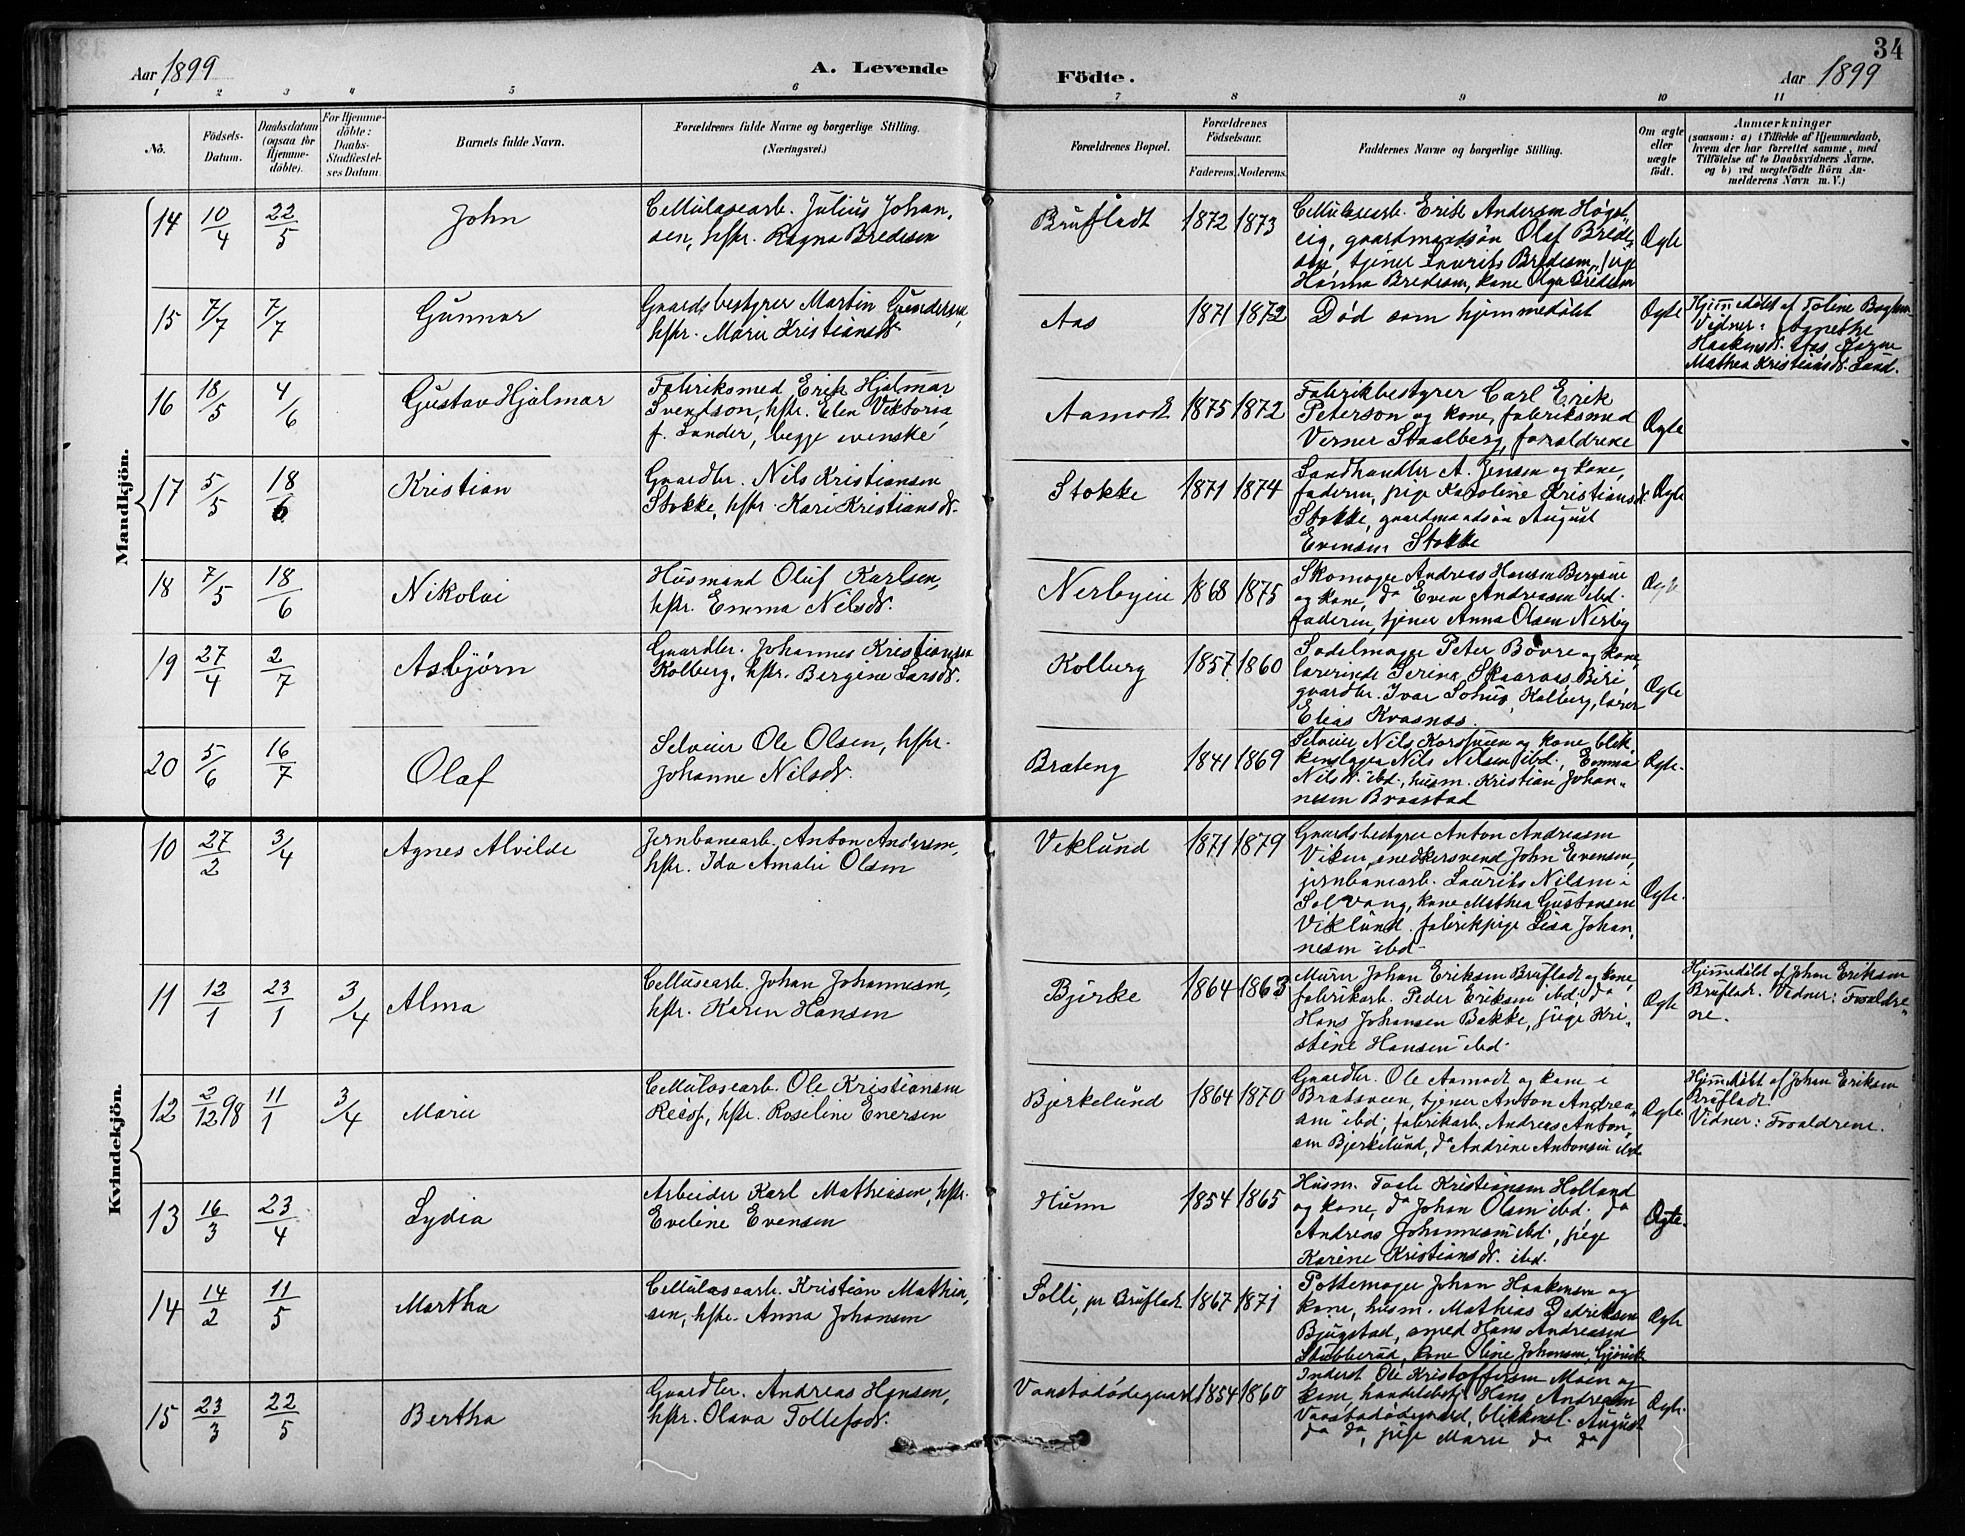 34
Aar 1899
A. Levende
Födte.
Aar 1899
1 2 3 4 5 6 7 8 9 10 11
No.
Födsels-
Datum.
Daabsdatum
(ogsaa for
Hjemme-
döbte).
For Hjemme-
döbte:
Daabs-
Stadfæstel-
ses Datum.
Barnets fulde Navn.
Forældrenes fulde Navne og borgerlige Stilling.
(Næringsvei.)
Forældrenes Bopæl.
Forældrenes
Födselsaar.
Faderens. Moderens.
Faddernes Navne og borgerlige Stilling.
Om ægte
eller
uægte
födt.
Anmærkninger
(saasom: a) i Tilfælde af Hjemmedaab,
hvem der har forrettet samme, med
Tilföielse af to Daabsvidners Navne,
og b) ved uægtefödte Börn An-
melderens Navn m. V.)
Mandkjön.
14 10/4 22/5 John
Cellulosearb. Julius Johan,
sen, hstr. Ragna Bredesen
Brufladt 1872 1873
Cellulosearb. Erik Andersen Høgst
eig, gaardmandsøn Olaf Brede,
sen, tjener Laurits Bredesen, pige
Hanna Bredesen, kone Olga Bredesen
Ægte
15 7/7 7/7 Gunnar
Gaardsbestyrer Martin Gundersen,
hstr. Marie Kristiansdr.
Aas 1871 1872
Død som hjemmedøbt
Ægte
Hjemmedøbt af Toline
Vidner: Agnethe
Haakensdr. Aas
Mathea Kristiansdr. Lund.
16 18/5 4/6 Gustav Hjalmar
Fabriksmed Erik Hjalmar
Svendson, hstr. Elen Viktoria
f. Sander, begge svenske
Aamodt 1875 1872
Fabrikbestyrer Carl Erik
Peterson og kone, fabriksmed
Verner Staalberg, forældrene
Ægte
17 5/5 18/6 Kristian
Gaardbr. Nils Kristiansen
Stokke, hstr. Kari Kristiansdr.
Stokke 1871 1874
Landhandler A. Jensen og kone,
faderen, pige Karoline Kristiansdr.
Stokke, gaardmandsøn August
Evensen Stokke
Ægte
18 7/5 18/6 Nikolai
Husmand Oluf Karlsen,
hstr. Emma Nilsdr.
Nerbyeie 1868 1875
Skomager Andreas Hansen
og kone, do Even Andreasen ibd.
faderen, tjener Anna Olsen Nerby
Ægte
19 27/4 2/7 Asbjørn
Gaardbr. Johannes Kristiansen
Kolberg, hstr. Bergine Larsdr.
Kolberg 1857 1860
Sadelmager Peter Bøvre og kone
lærerinde Serina Skaaraas Biri
gaardbr. Ivar Kolberg, lærer
Elias Kvasnes.
Ægte
20 5/6 16/7 Olaf
Selveier Ole Olsen, hstr.
Johanne Nilsdr.
Brateng 1841 1869
Selveier Nils Korsveien og kone, blik,
kenslager Nils Nilsen ibd., Emma
Nilsdr. ibd., husm. Kristian Johan,,
nesen Braastad
Ægte.
Kvindekjön.
10 27/2 3/4 Agnes Alvilde
Jernbanearb. Anton Andersen,
hstr. Ida Amalie Olsen
Viklund 1871 1879
Gaardsbestyrer Anton Andreasen
Viken, snedkersvend John Evensen,
jernbanearb. Laurits Nilsen i
Solvang, kone Mathea Gustavsen
Viklund. fabrikpige Lisa Johan,
nesen ibd.
Ægte.
11 12/1 23/1 3/4 Alma
Cellusearb. Johan Johannesen,
hstr. Karen Hansen
Bjerke 1864 1863
Murer Johan Eriksen Brufladt og kone,
fabrikarb. Peder Eriksen ibd. do
Hans Johansen Bakke, pige Kri,
stine Hansen ibd.
Ægte
Hjemmedøbt af Johan Eriksen
Brufladt. Vidner: Forældre,,
ne.
12 2/12 98 11/1 3/4 Marie
Cellulosearb. Ole Kristiansen
hstr. Roseline Enersen
Bjerkelund 1864 1870
Gaardbr. Ole Aamodt og kone i
Bratsveen, tjener Anton Andrea,,
sen ibd., fabrikarb. Andreas Anton,
sen Bjerkelund, do Andrine Antonsen ibd
Ægte
Hjemmedøbt af Johan Eriksen
Brufladt.
Vidner: Forældrene.
13 16/3 23/4 Lydia
Arbeider Karl Mathiesen, hstr.
Eveline Evensen
Hunn 1854 1865
Husm. Kristiansen Holland
og kone, do Johan Olsen ibd. do
Andreas Johannesen ibd., pige
Karine Kristiansdr. ibd.
Ægte.
14 14/2 11/5 Martha
Cellulosearb. Kristian Mathia,
sen, hstr. Anna Johansen
Solli, pr Brufladt 1867 1871
Pottemager Johan Haakensen og
kone, husm. Mathias Dedriksen
Bjugstad, smed Hans Andreasen
Stubberud, kone Oline Johansen, Gjøvik
Ægte
15 23/3 22/5 Bertha
Gaardbr. Andreas Hansen,
hstr. Olava Tollefsdr.
Vanstadødegaard 1854 1860
Inderst Ole Kristoffersen Moen og
kone, handelsbetj. Hans Andreasen
Vanstadødegaard, blikkensl. August
do do, pige Marie do do
Ægte.